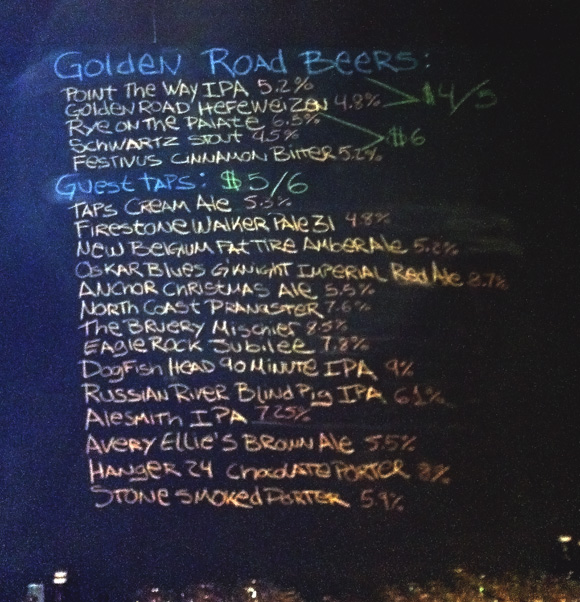 Golden Road Beers:
Point The Way IPA 5.2%
Golden Road Hefeweizen 4.8% $4/5
Rye on the Palate 6.5%
Schwartz Stout 4.5% $6
Festivus Cinnamon Bitter 5.2%
Guest Taps: $5/6
Taps Cream Ale 5.3%
Firestone Walker Pale 31 4.8%
New Belgium Fat Tire Amber Ale 5.2%
Oskar Blues G'Knight Imperial Red Ale 8.7%
Anchor Christmas Ale 5.5%
North Coast Pranqster 7.6%
The Bruery Mischief 8.5%
Eagle Rock Jubilee 7.8%
Dogfish Head 90 Minute IPA 9%
Russian River Blind Pig IPA 6.1%
Alesmith IPA 7.25%
Avery Ellie's Brown Ale 5.5%
Hanger 24 Chocolate Porter 8%
Stone Smoked Porter 5.9%